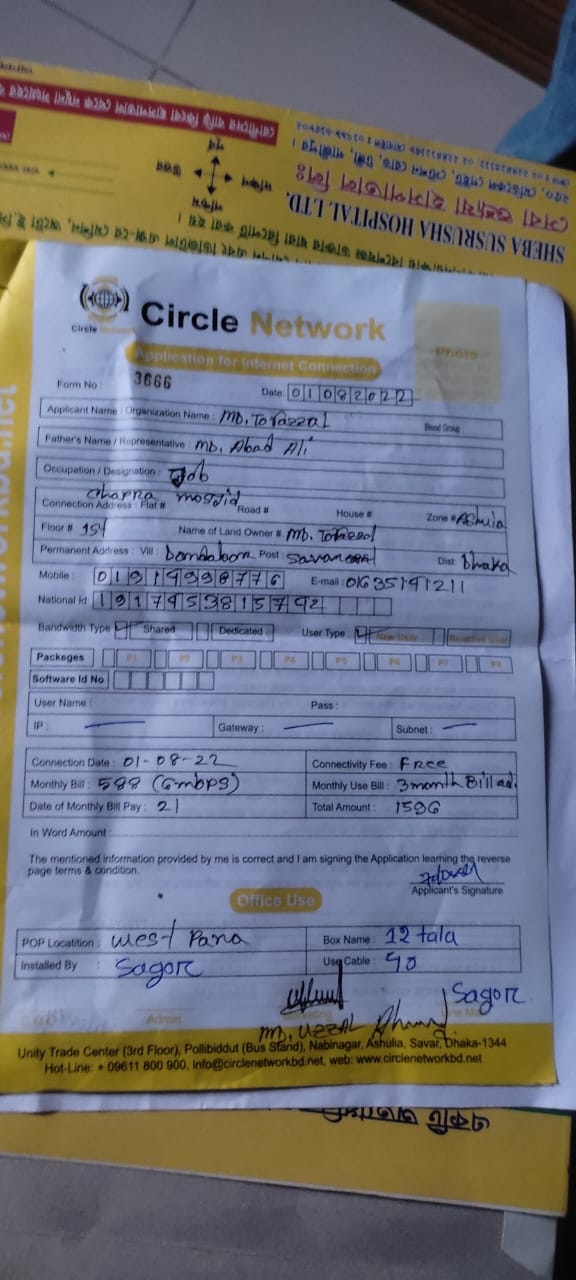 সেবা শুশ্রূষা হাসপাতাল লিঃ
SHEBA SUSRUSHA HOSPITAL LTD.
Circle Network
Circle Network
Application for Internet Connection
Photo
Form No : 3666
Date: 01082022
Applicant Name / Organization Name : MD. Tofazzal Blood Group
Father's Name / Representative : MD. Abad Ali
Occupation / Designation : Job
Connection Address : Flat # Chapra mosjid Road # House # Zone # Ashulia
Floor # 1st Name of Land Owner # MD. Tofazzal
Permanent Address : Vill : Post : Savar Dist: Dhaka
Mobile : E-mail : 01635191211
National Id
Bandwidth Type Shared Dedicated User Type New User Reactive User
Packeges P1 P2 P3 P4 P5 P6 P7 P8
Software Id No
User Name : Pass :
IP : Gateway : Subnet :
Connection Date : 01-08-22 Connectivity Fee : Free
Monthly Bill : 588 (6mbps) Monthly Use Bill : 3 month Bill ad.
Date of Monthly Bill Pay : 21 Total Amount : 1596
In Word Amount :
The mentioned information provided by me is correct and I am signing the Application learning the reverse
page terms & condition.
Applicant's Signature
Office Use
POP Locatition : West Para Box Name : 12 tala
Installed By : Sagor Use Cable : 90
Sagor
Admin
MD. UZZAL
Unity Trade Center (3rd Floor), Pollibiddut (Bus Stand), Nabinagar, Ashulia, Savar, Dhaka-1344
Hot-Line: + 09611 800 900, info@circlenetworkbd.net, web: www.circlenetworkbd.net